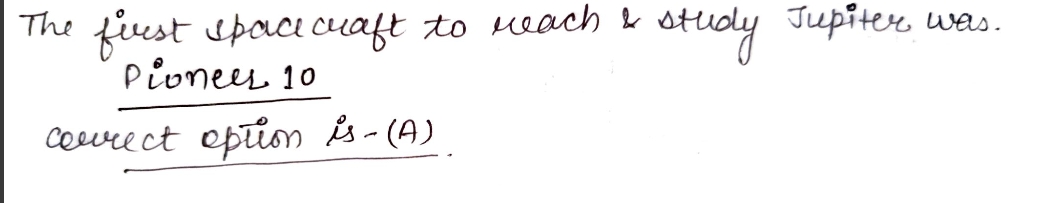 The first spacecraft to reach & study Jupiter was.
Pioneer 10
correct option is - (A)